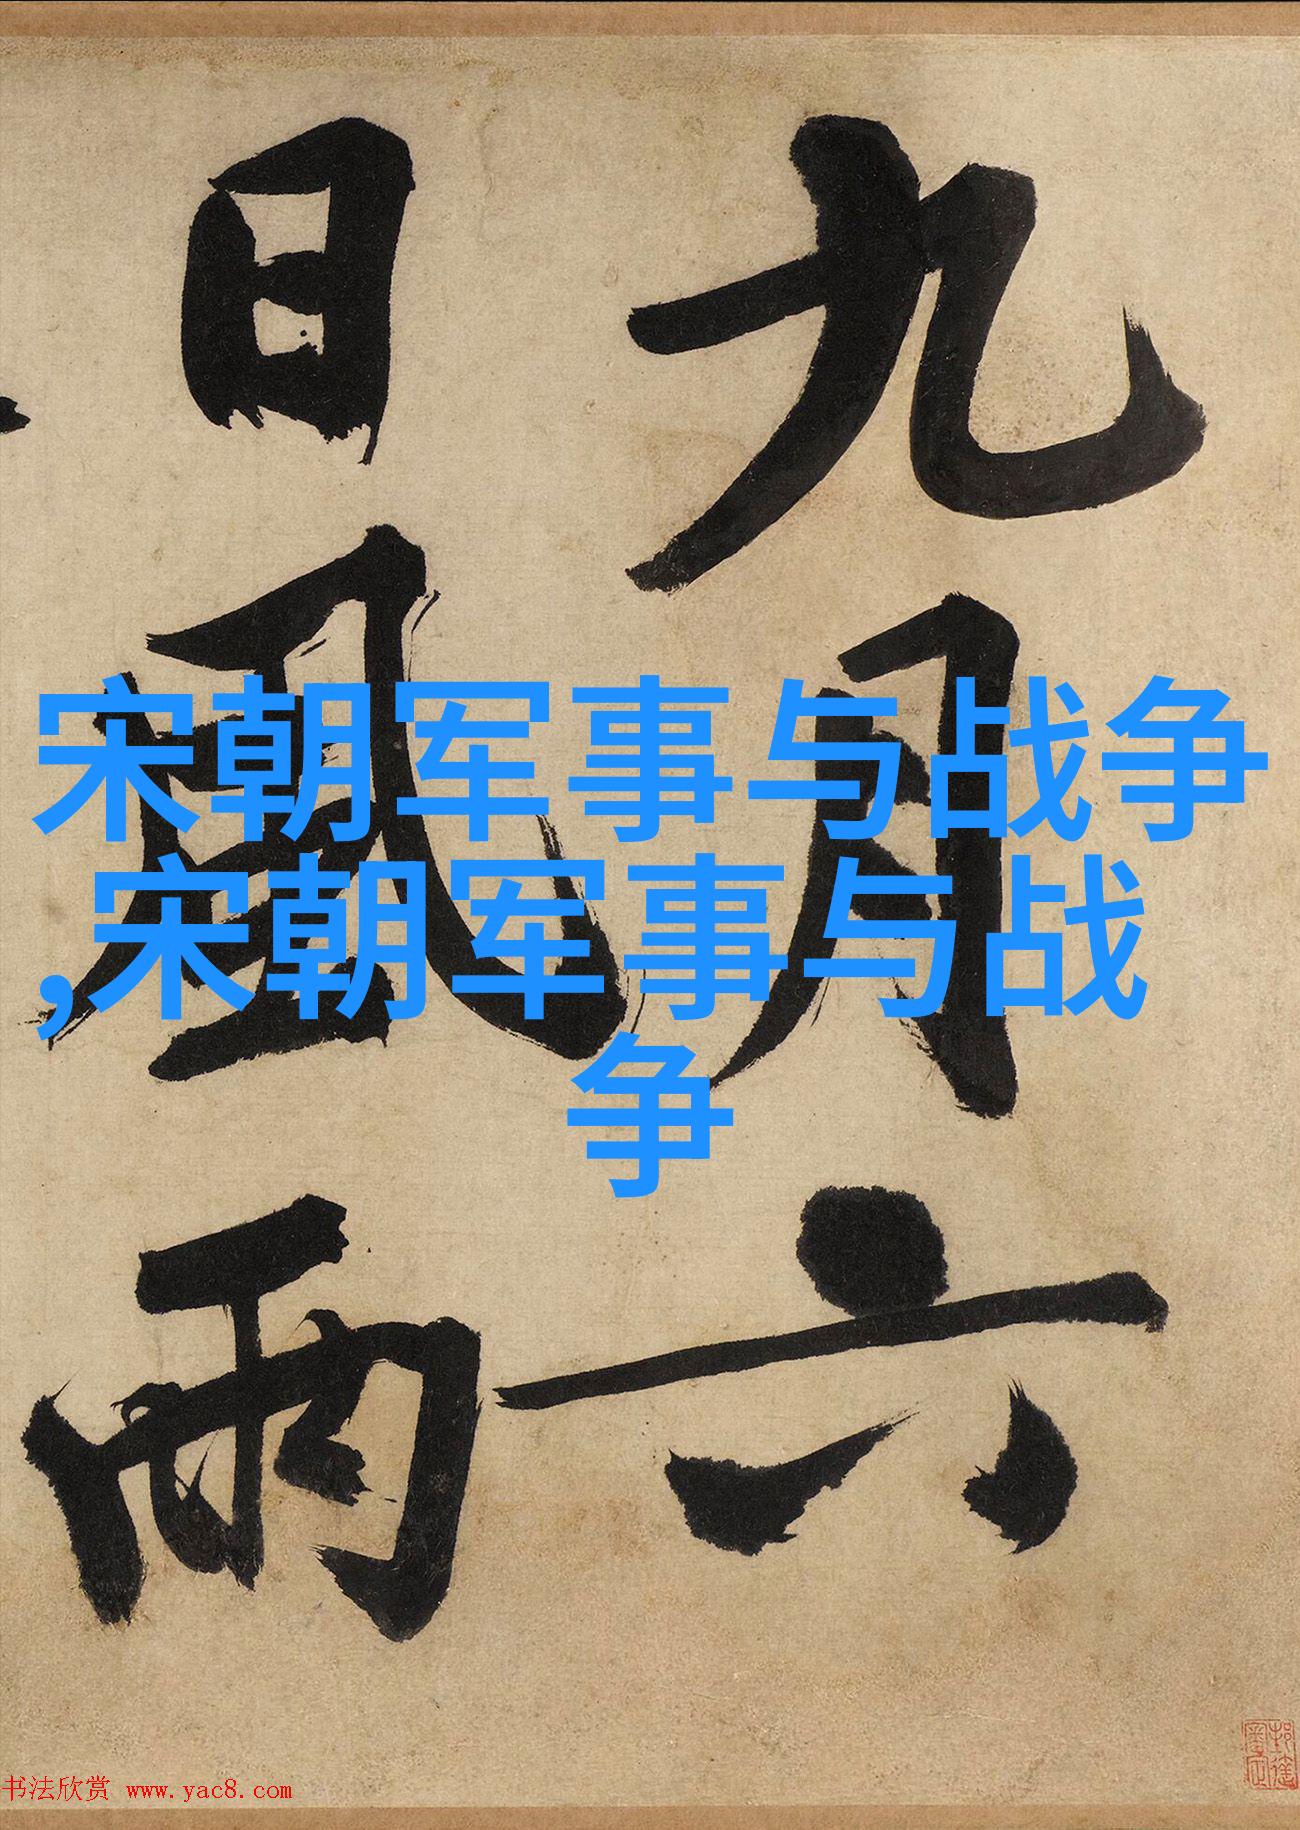 九月六
日風雨
宋朝军事与战争
,宋朝军事与战
争
书法欣赏 www.yac8.com